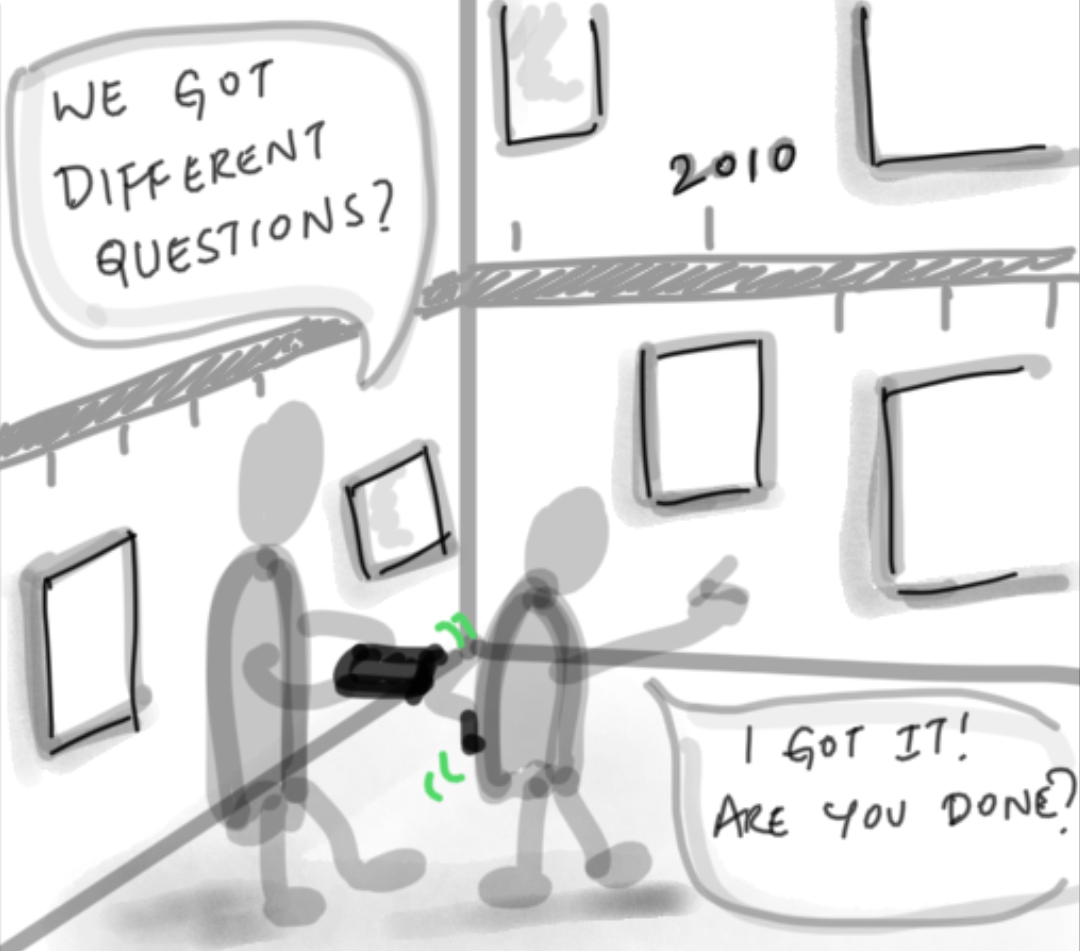 WE GOT
DIFFERENT
QUESTIONS?
2010
I GOT IT!
ARE YOU DONE?